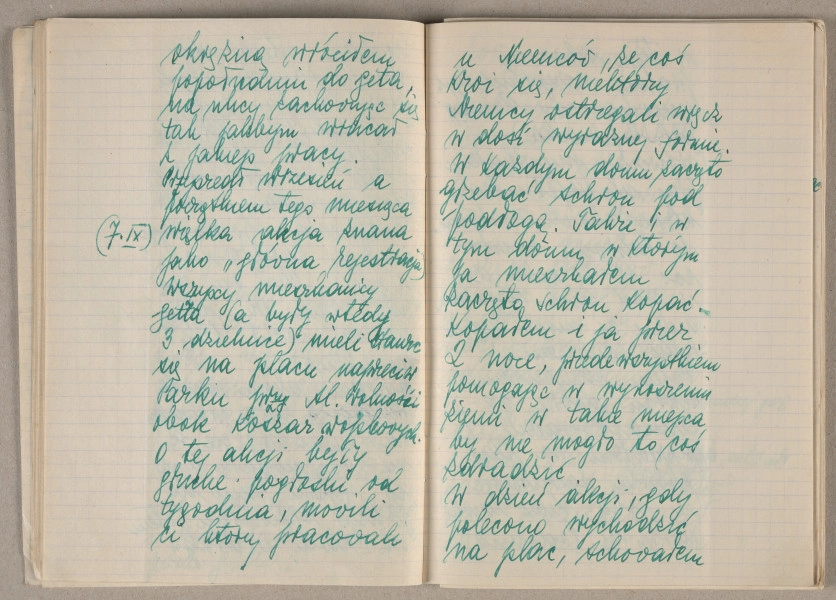 okrężną wróciłem
popołudniu do geta,
na ulicy zachowując się
tak jakbym wracał
z jakiejś pracy.
Nadszedł wrzesień a
początkiem tego miesiąca
(7.IX) wielka akcja znana
jako „główna rejestracja"
wszyscy mieszkańcy
getta (a były wtedy
3 dzielnice) mieli stawić
się na placu naprzeciw
Parku przy Al. Wolności
obok koszar wojskowych.
O tej akcji były
głuche pogłoski od
tygodnia, movili
ci którzy pracowali
u Niemców, że coś
kroi się, niektórzy
Niemcy ostrzegali wręcz
w dość wyraźnej formie.
W każdym domu zaczęto
grzebać schron pod
podłogą. Także i w
tym domu, w którym
ja mieszkałem
zaczęto schron kopać.
Kopałem i ja przez
2 noce, przedewszystkiem
pomogając w wynoszeniu
ziemi w takie miejsca
by nie mogło to coś
zdradzić
W dzień akcji, gdy
polecono wychodzić
na plac, schowałem